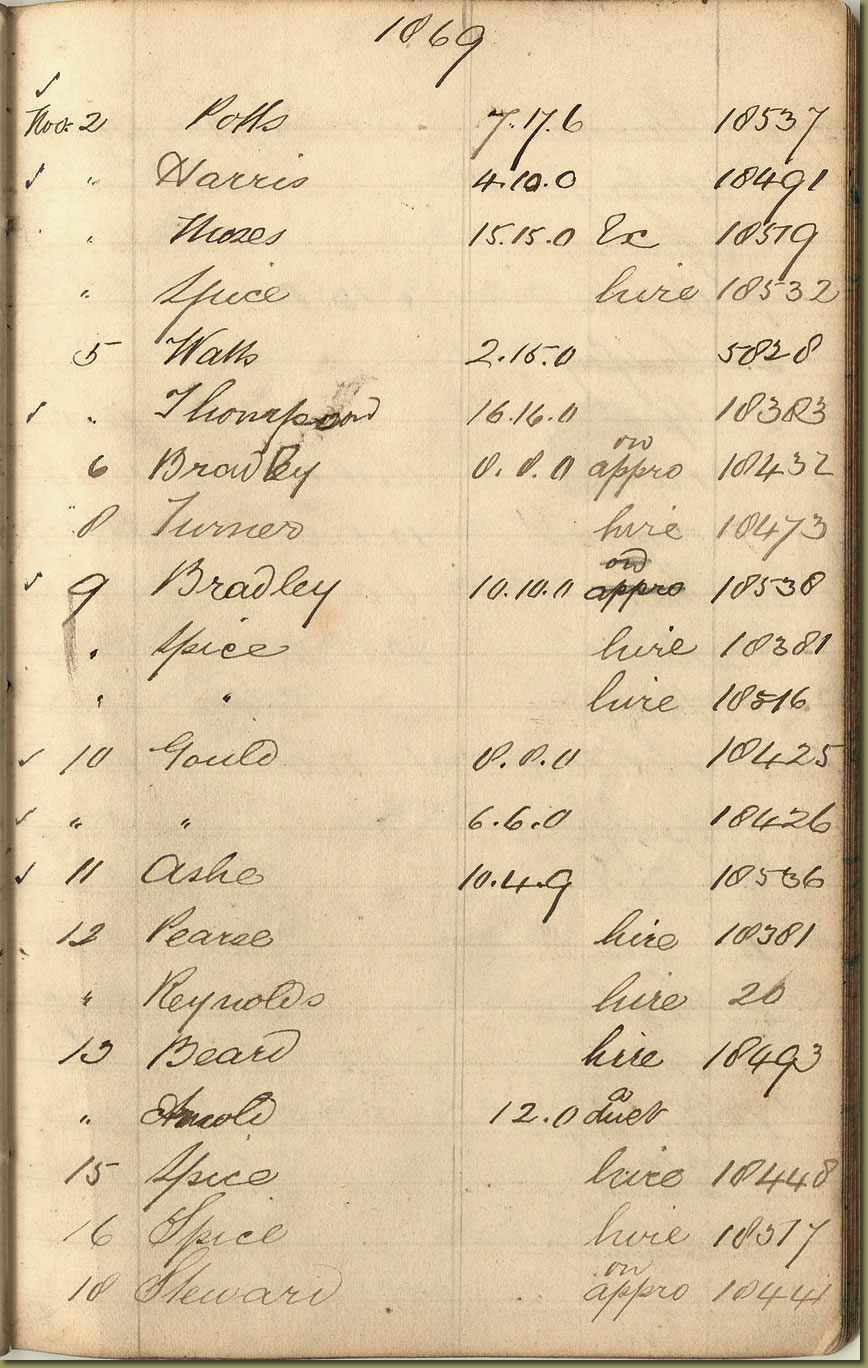 1869
Nov. 2 Potts 7.17.6 18537
" Harris 4.10.0 18491
" Moses 15.15.0 Ex 18519
" Spice hire 18532
5 Watts 2.15.0 5828
" Thompson 16.16.0 18383
6 Bradley 8.8.0 on appro 18432
8 Turner hire 18473
9 Bradley 10.10.0 on appro 18538
" Spice hire 18381
" " hire 18516
10 Gould 8.8.0 18425
" " 6.6.0 18426
11 Ashe 10.4.9 18536
12 Pearse hire 18381
" Reynolds hire 20
13 Beard hire 18493
" Arnold 12.0 a duet
15 Spice hire 18448
16 Spice hire 18517
18 Steward on appro 18441